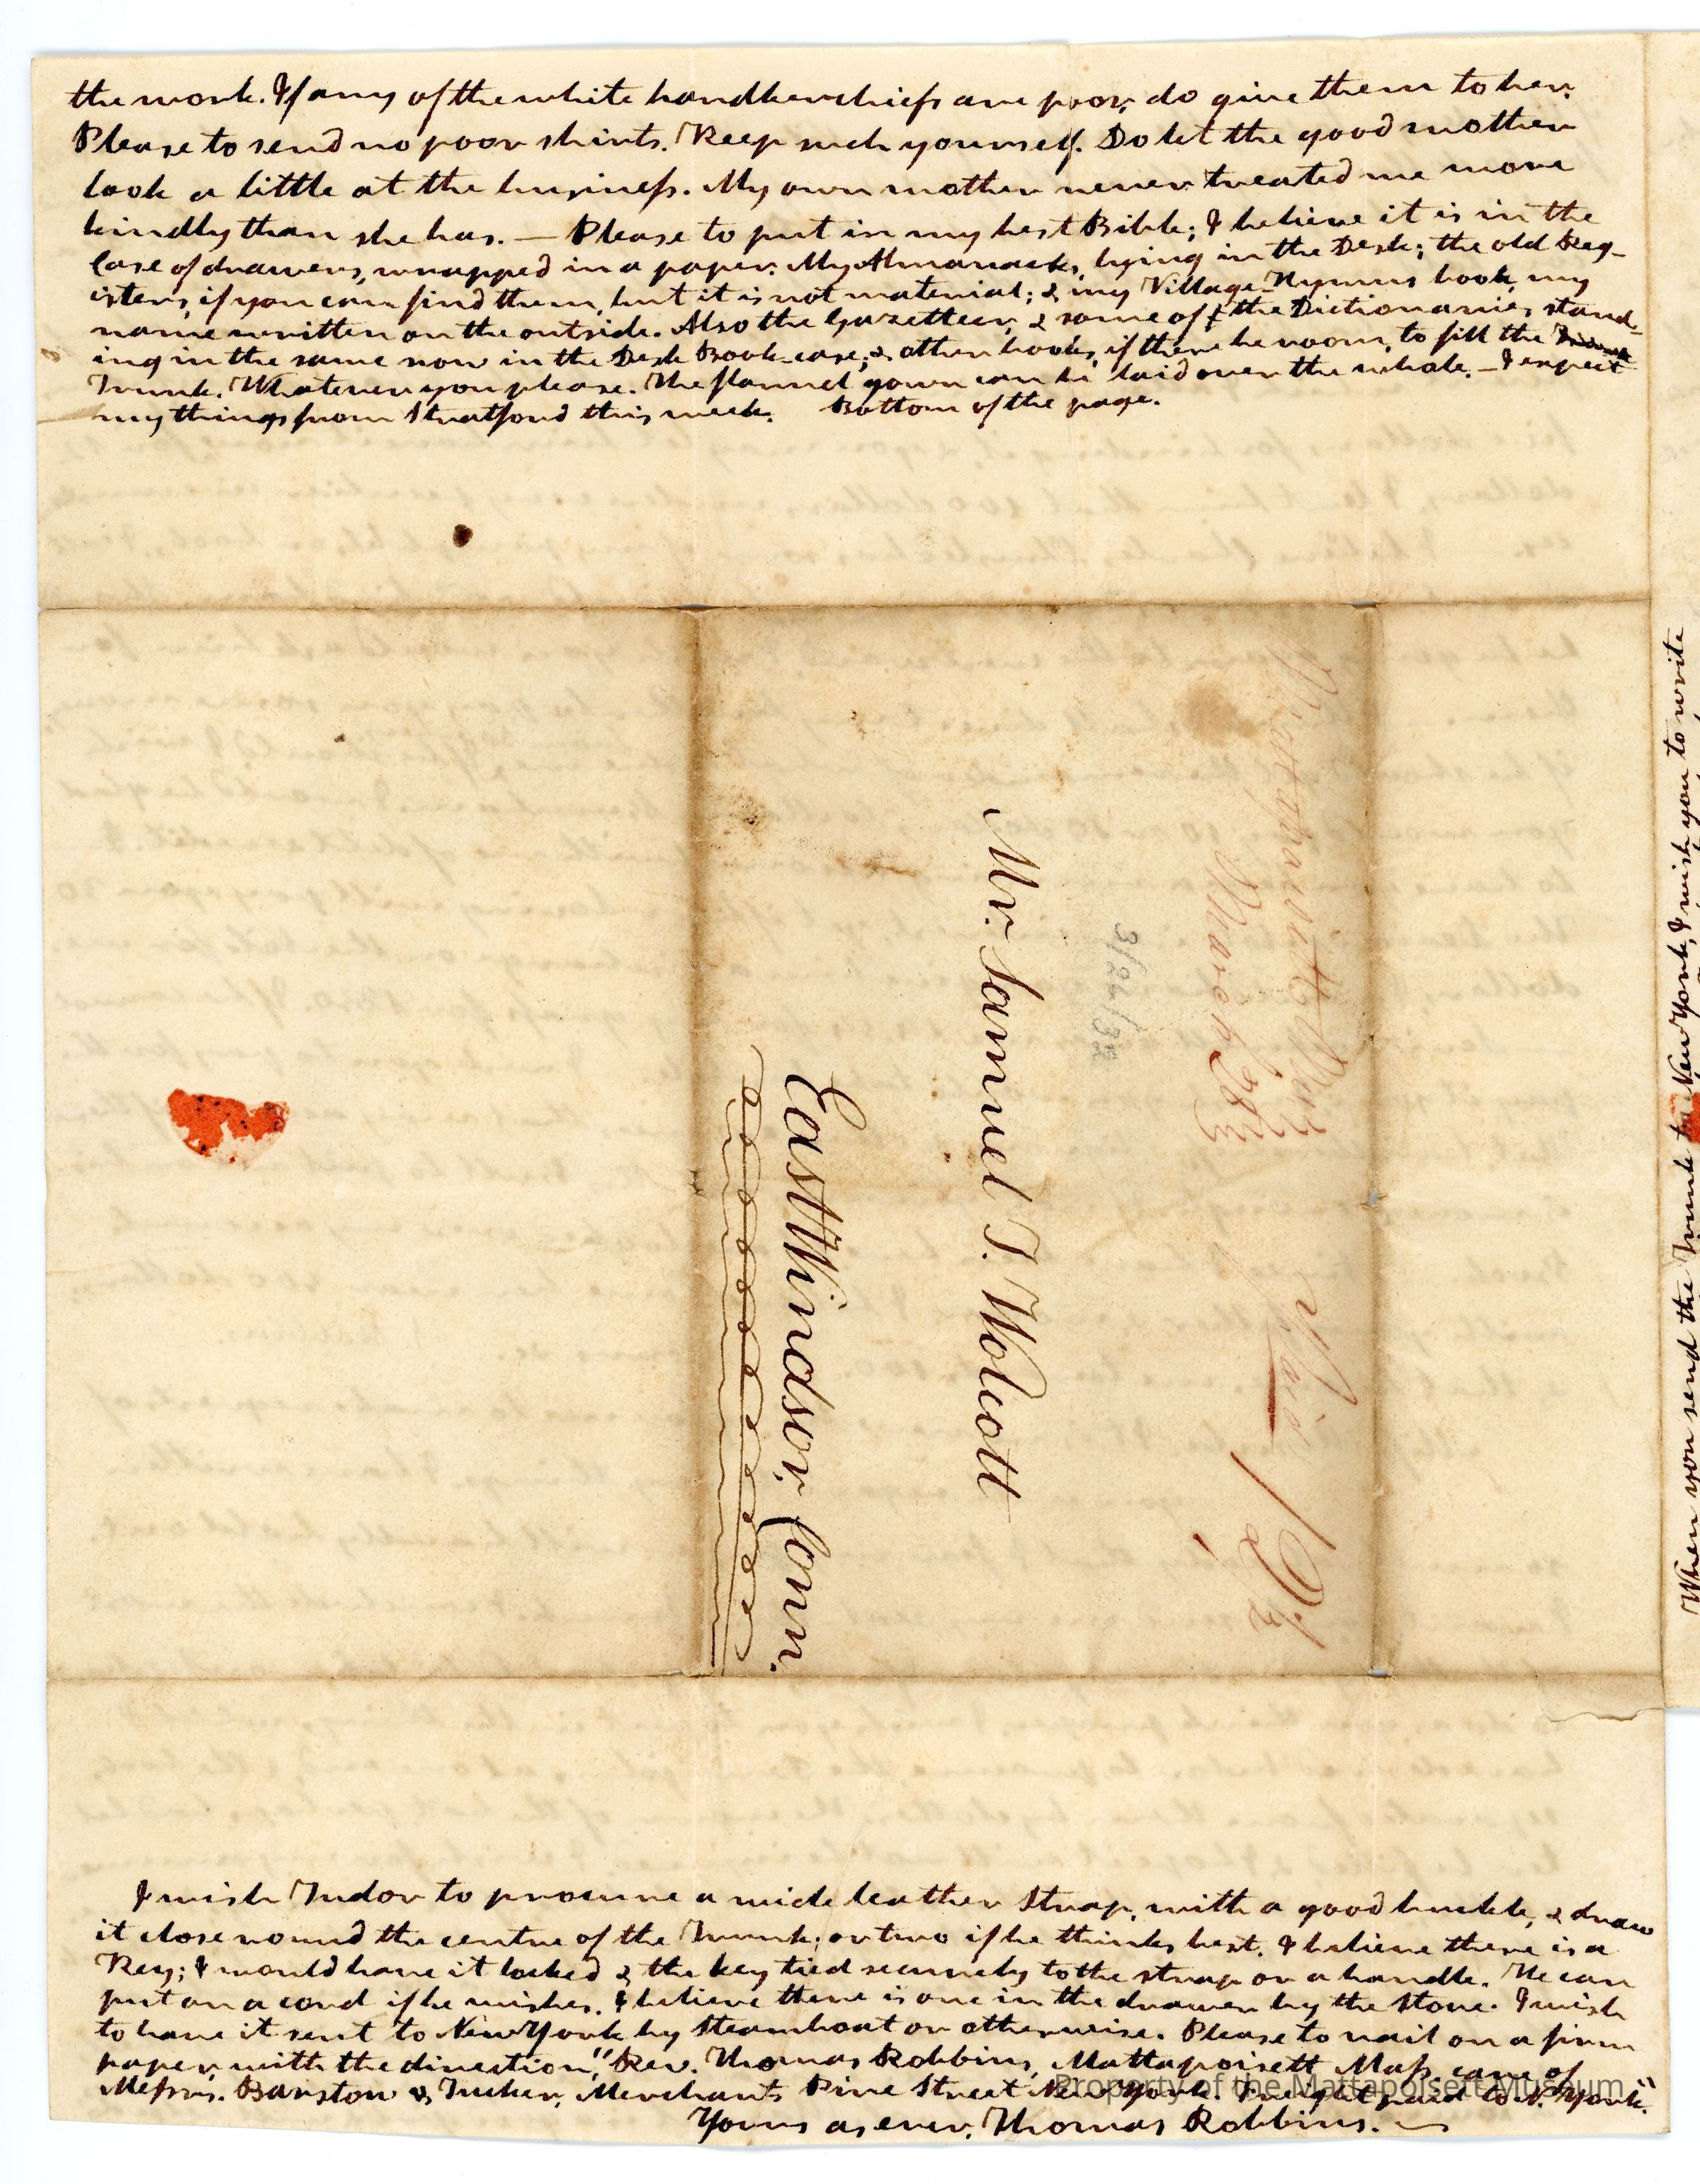 the work. If any of the white handkerchiefs are poor, do give them to her.
Please to send no poor shirts. Keep such yourself. Do let the good mother
look a little at the business. My own mother never treated me more
kindly than she has. — Please to put in my best Bible; I believe it is in the
Case of drawers, wrapped in a paper. My Almanacks, lying in the Desk; the old Reg-
isters, if you can find them, but it is not material; & my Village Hymns book, my
name written on the outside. Also the Gazetteer, & some of the Dictionaries, stand-
ing in the same row in the Desk Book-case; & other books, if there be room, to fill the
Trunk. Whatever you please. The flannel gown can be laid over the whole. — I expect
my things from Stratford this week. Bottom of the page.
Mattapoisett Mass
March 28
Paid 12½
3/26/32
Mr. Samuel T. Wolcott
East Windsor, Conn.
I wish Tudor to procure a wide leather strap, with a good buckle, & draw
it close round the centre of the Trunk; or two if he thinks best. I believe there is a
Key; I would have it locked & the key tied securely to the strap or a handle. He can
put on a cord if he wishes. I believe there is one in the drawer by the stove. I wish
to have it sent to New York by steamboat or otherwise. Please to nail on a firm
paper, with the direction, "Rev. Thomas Robbins, Mattapoisett Mass. care of
Messrs. Barstow & Tucker, Merchants Pine Street New York. Freight paid to N. York."
Yours as ever, Thomas Robbins. —
When you send the Trunk to New York, I wish you to write
Property of the Mattapoisett Museum